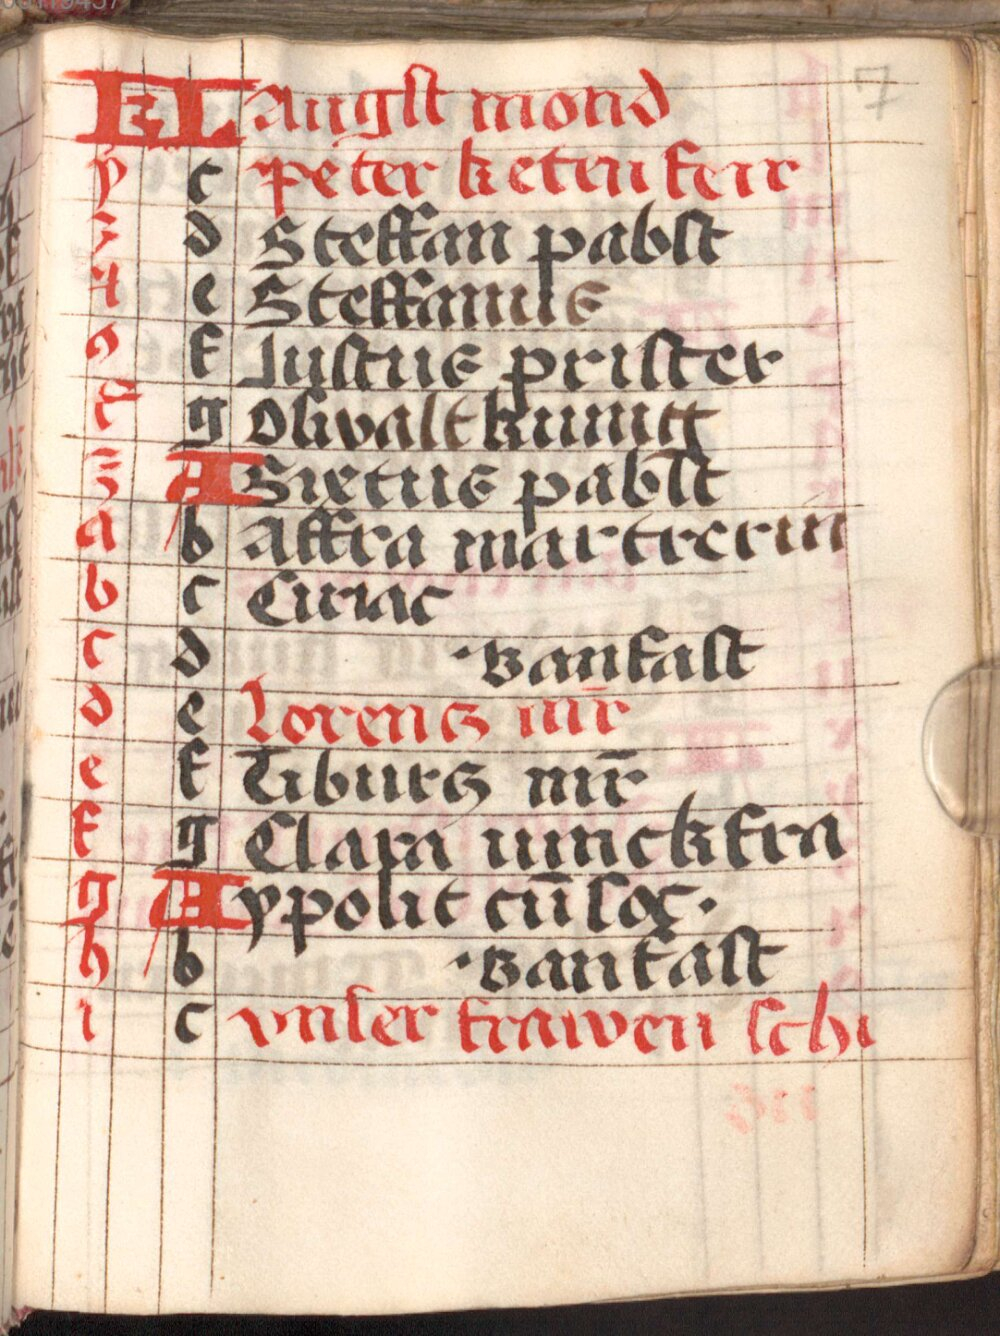 KL Augst mond
y c peter keten feir
z d Steffan pabst
4 e Steffanus
9 f Justus prister
g oswalt kunig
3 A Sixtus pabst
a b affra martrerin
b c Ciriac
c d vanfast
d e Lorentz mr̄
e f Tiburtz mr̄
f g Clara junckfra
g A ypolit cū soc.
h b vanfast
i c vnser frawen schi